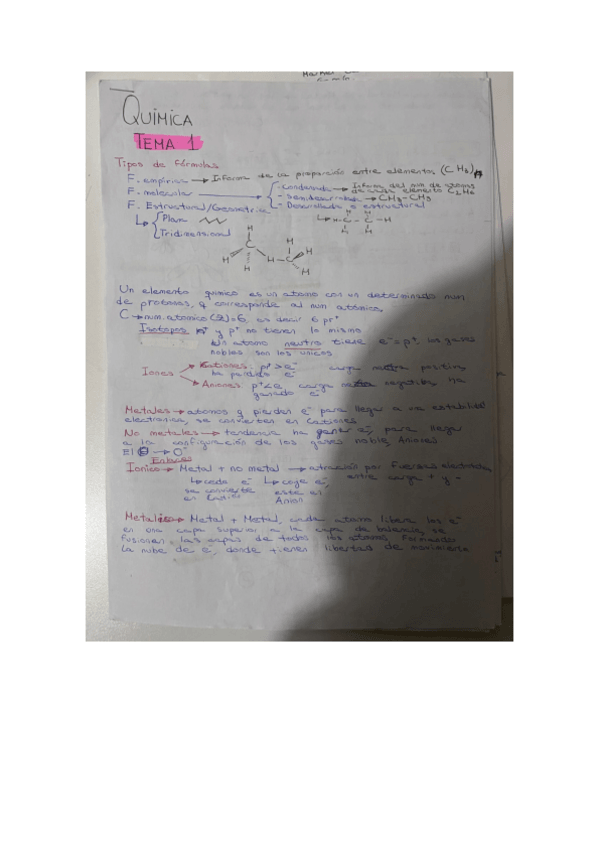 QUÍMICA
TEMA 1
Tipos de fórmulas
F. empírica → Informa de la proporción entre elementos (CH3)n
F. molecular → - Condensada → Informa del num de atomos de cada elemento C2H6
- Semidesarrollada → CH3-CH3
F. Estructural/Geometrica - Desarrollada o estructural
Plana
Tridimensional
H H
H-C-C-H
H H
H
C H
H H-C H
H H
Un elemento químico es un atomo con un determinado num
de protones, q corresponde al num atómico.
C → num. atomico (Z)=6, es decir 6 pr+
Isotopos y p+ no tienen lo mismo
Un atomo neutro tiene e-=p+, los gases
nobles son los unicos
Iones
Cationes: p+>e- carga positiva,
ha perdido e-
Aniones p+<e- carga negativa, ha
ganado e-
Metales → atomos q pierden e- para llegar a una estabilidad
electronica, se convierten en Cationes
No metales → tendencia ha ganar e-, para llegar
a la configuración de los gases noble, Aniones
El → O-
Enlaces
Ionico → Metal + no metal → atracción por fuerzas electricas
entre carga + y -
cede e- coge e-,
se convierte está en
en Cation Anion
Metalico → Metal + Metal, cada atomo libera los e-
en una capa superior a la capa de balencia, se
fusionen las capas de todos los atomos formando
la nube de e-, donde tienen libertad de movimiento